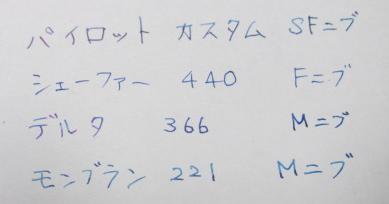 パイロット カスタム SFニブ
シェーファー 440 Fニブ
デルタ 366 Mニブ
モンブラン 221 Mニブ